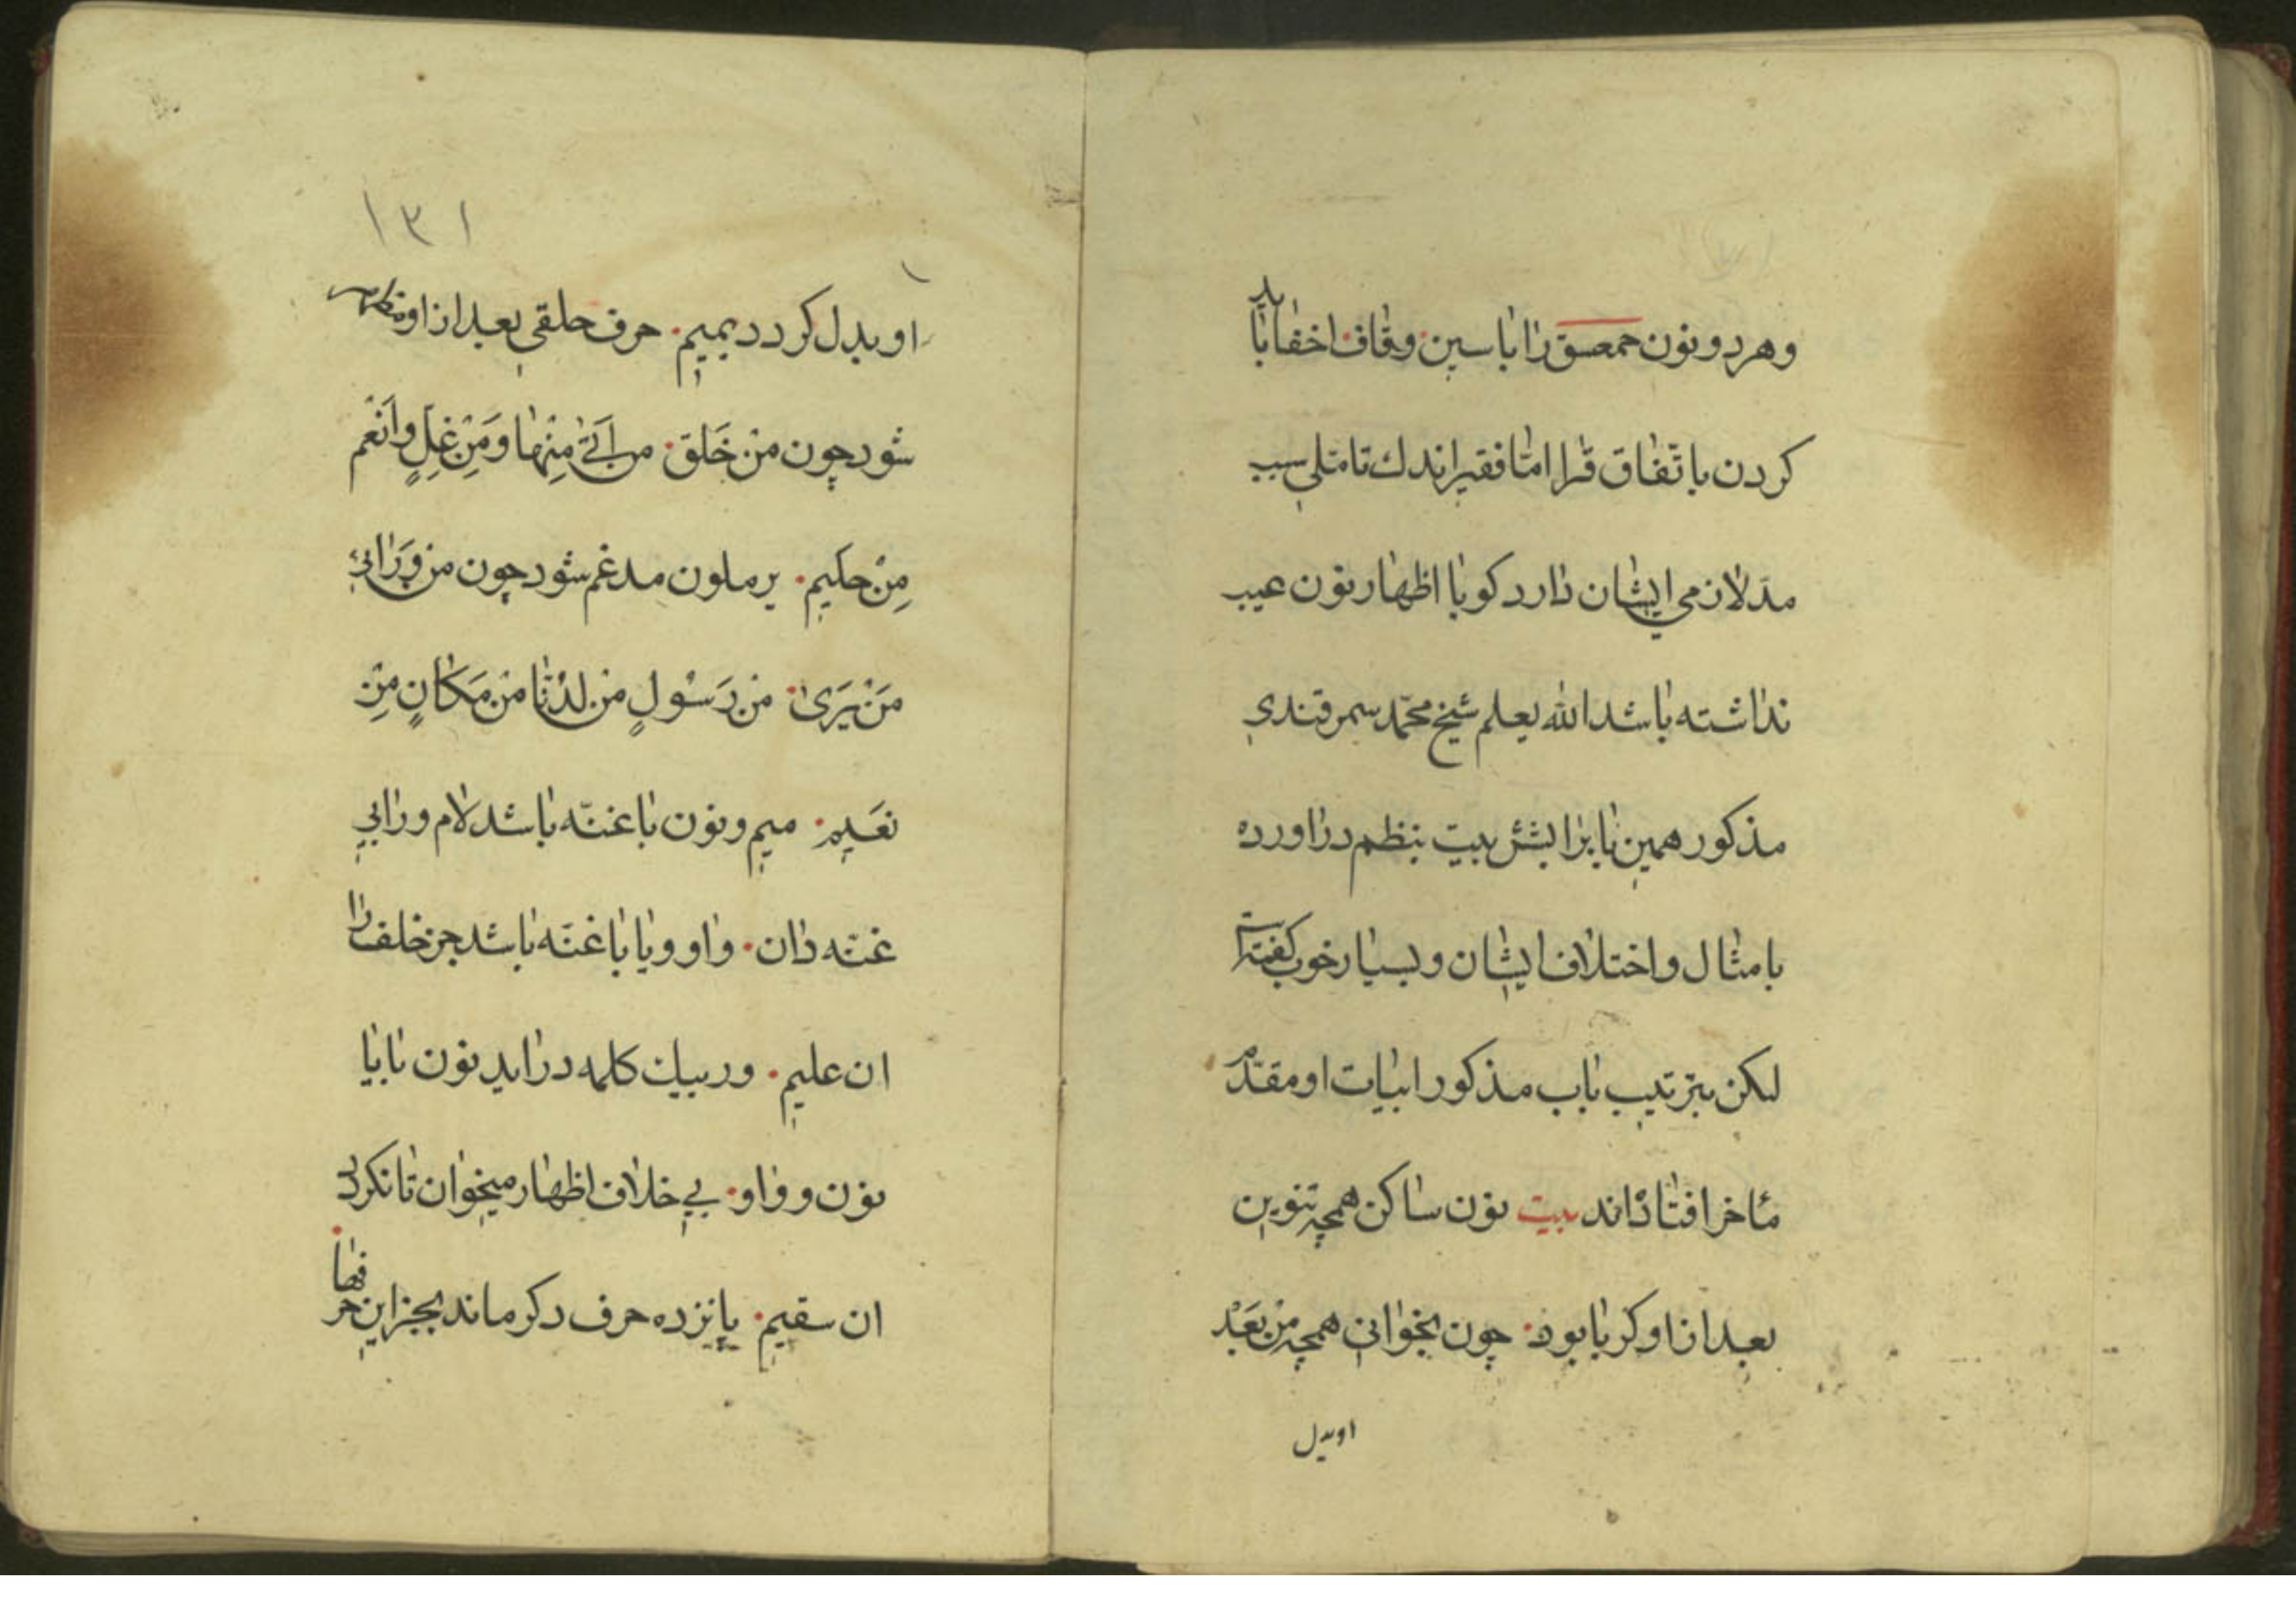 وهر دو نون حمعسق را با سین وقاف اخفا باید
کردن باتّفاق قرا امّا فقیر اندك تامّلی سبب
مدّ لازمی ایشان دارد کویا اظهار نون عیب
نداشته باشد الله یعلم شیخ محمّد سمرقندی
مذکور همین را بیت بنظم دراورده
بامثال واختلاف ایشان وبسیار خوب کفته است
لکن بترتیب باب مذکور ابیات او مقدّم
مأخر افتاداند بیت نون ساکن همچه تنوین
بعد از او کر با بود چون بخوانی همچه من بَعْد
او بدل
١٣١
او بدل کردد بمیم حرف حلقی بعد از او مظهر
شود چون منْ خَلَق من اَتیٰ مِنْهٰا ومِنْ غِلٍ واَنْعَم
مِنْ حکیم یرملون مدغم شود چون من وَرٰائی
مَنْ یَریٰ من رَسُولٍ من لدُنّا من مَکٰانٍ مِنْ
نعَیم میم ونون با غنّه باشد لام ورا بی
غنّه دان واو ویا با غنّه باشد جز خلف را
ان علیم وربیك کلمه دراید نون با یا
نون وواو بی خلاف اظهار میخوان تا نکردد
ان سقیم پانزده حرف دکر ماند بجز این حرفها